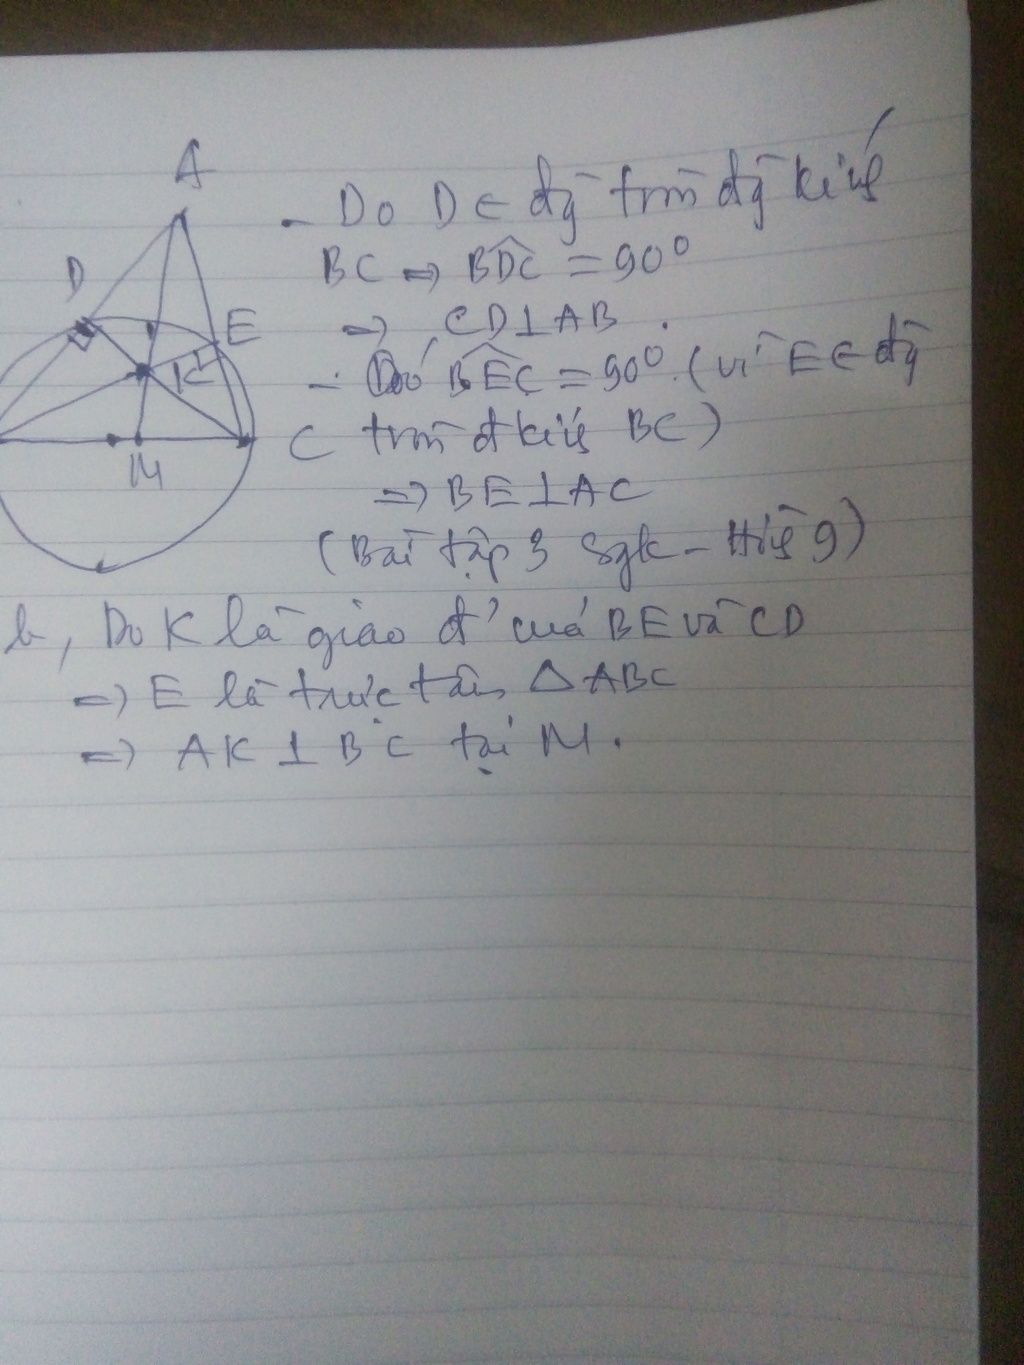 A
- Do D ∈ đg tròn đg kính
D
BC => BDC = 90°
=> CD⊥AB.
E
- Có BEC = 90°. (vì E ∈ đg
K
C tròn đ kính BC)
M
=> BE⊥AC
(Bài tập 3 Sgk - Hình 9)
b, Do K là giao đ' của BE và CD
=> E là trực tâm △ABC
=> AK ⊥ BC tại M.